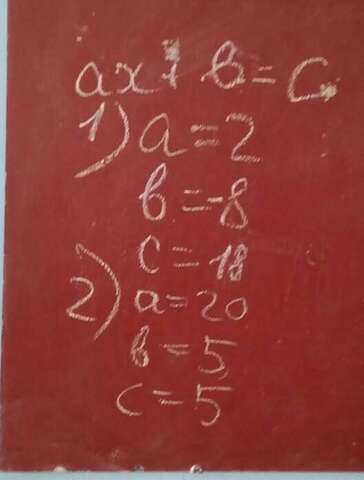 ax + b = c
1) a = 2
b = -8
c = 18
2) a = 20
b = 5
c = 5